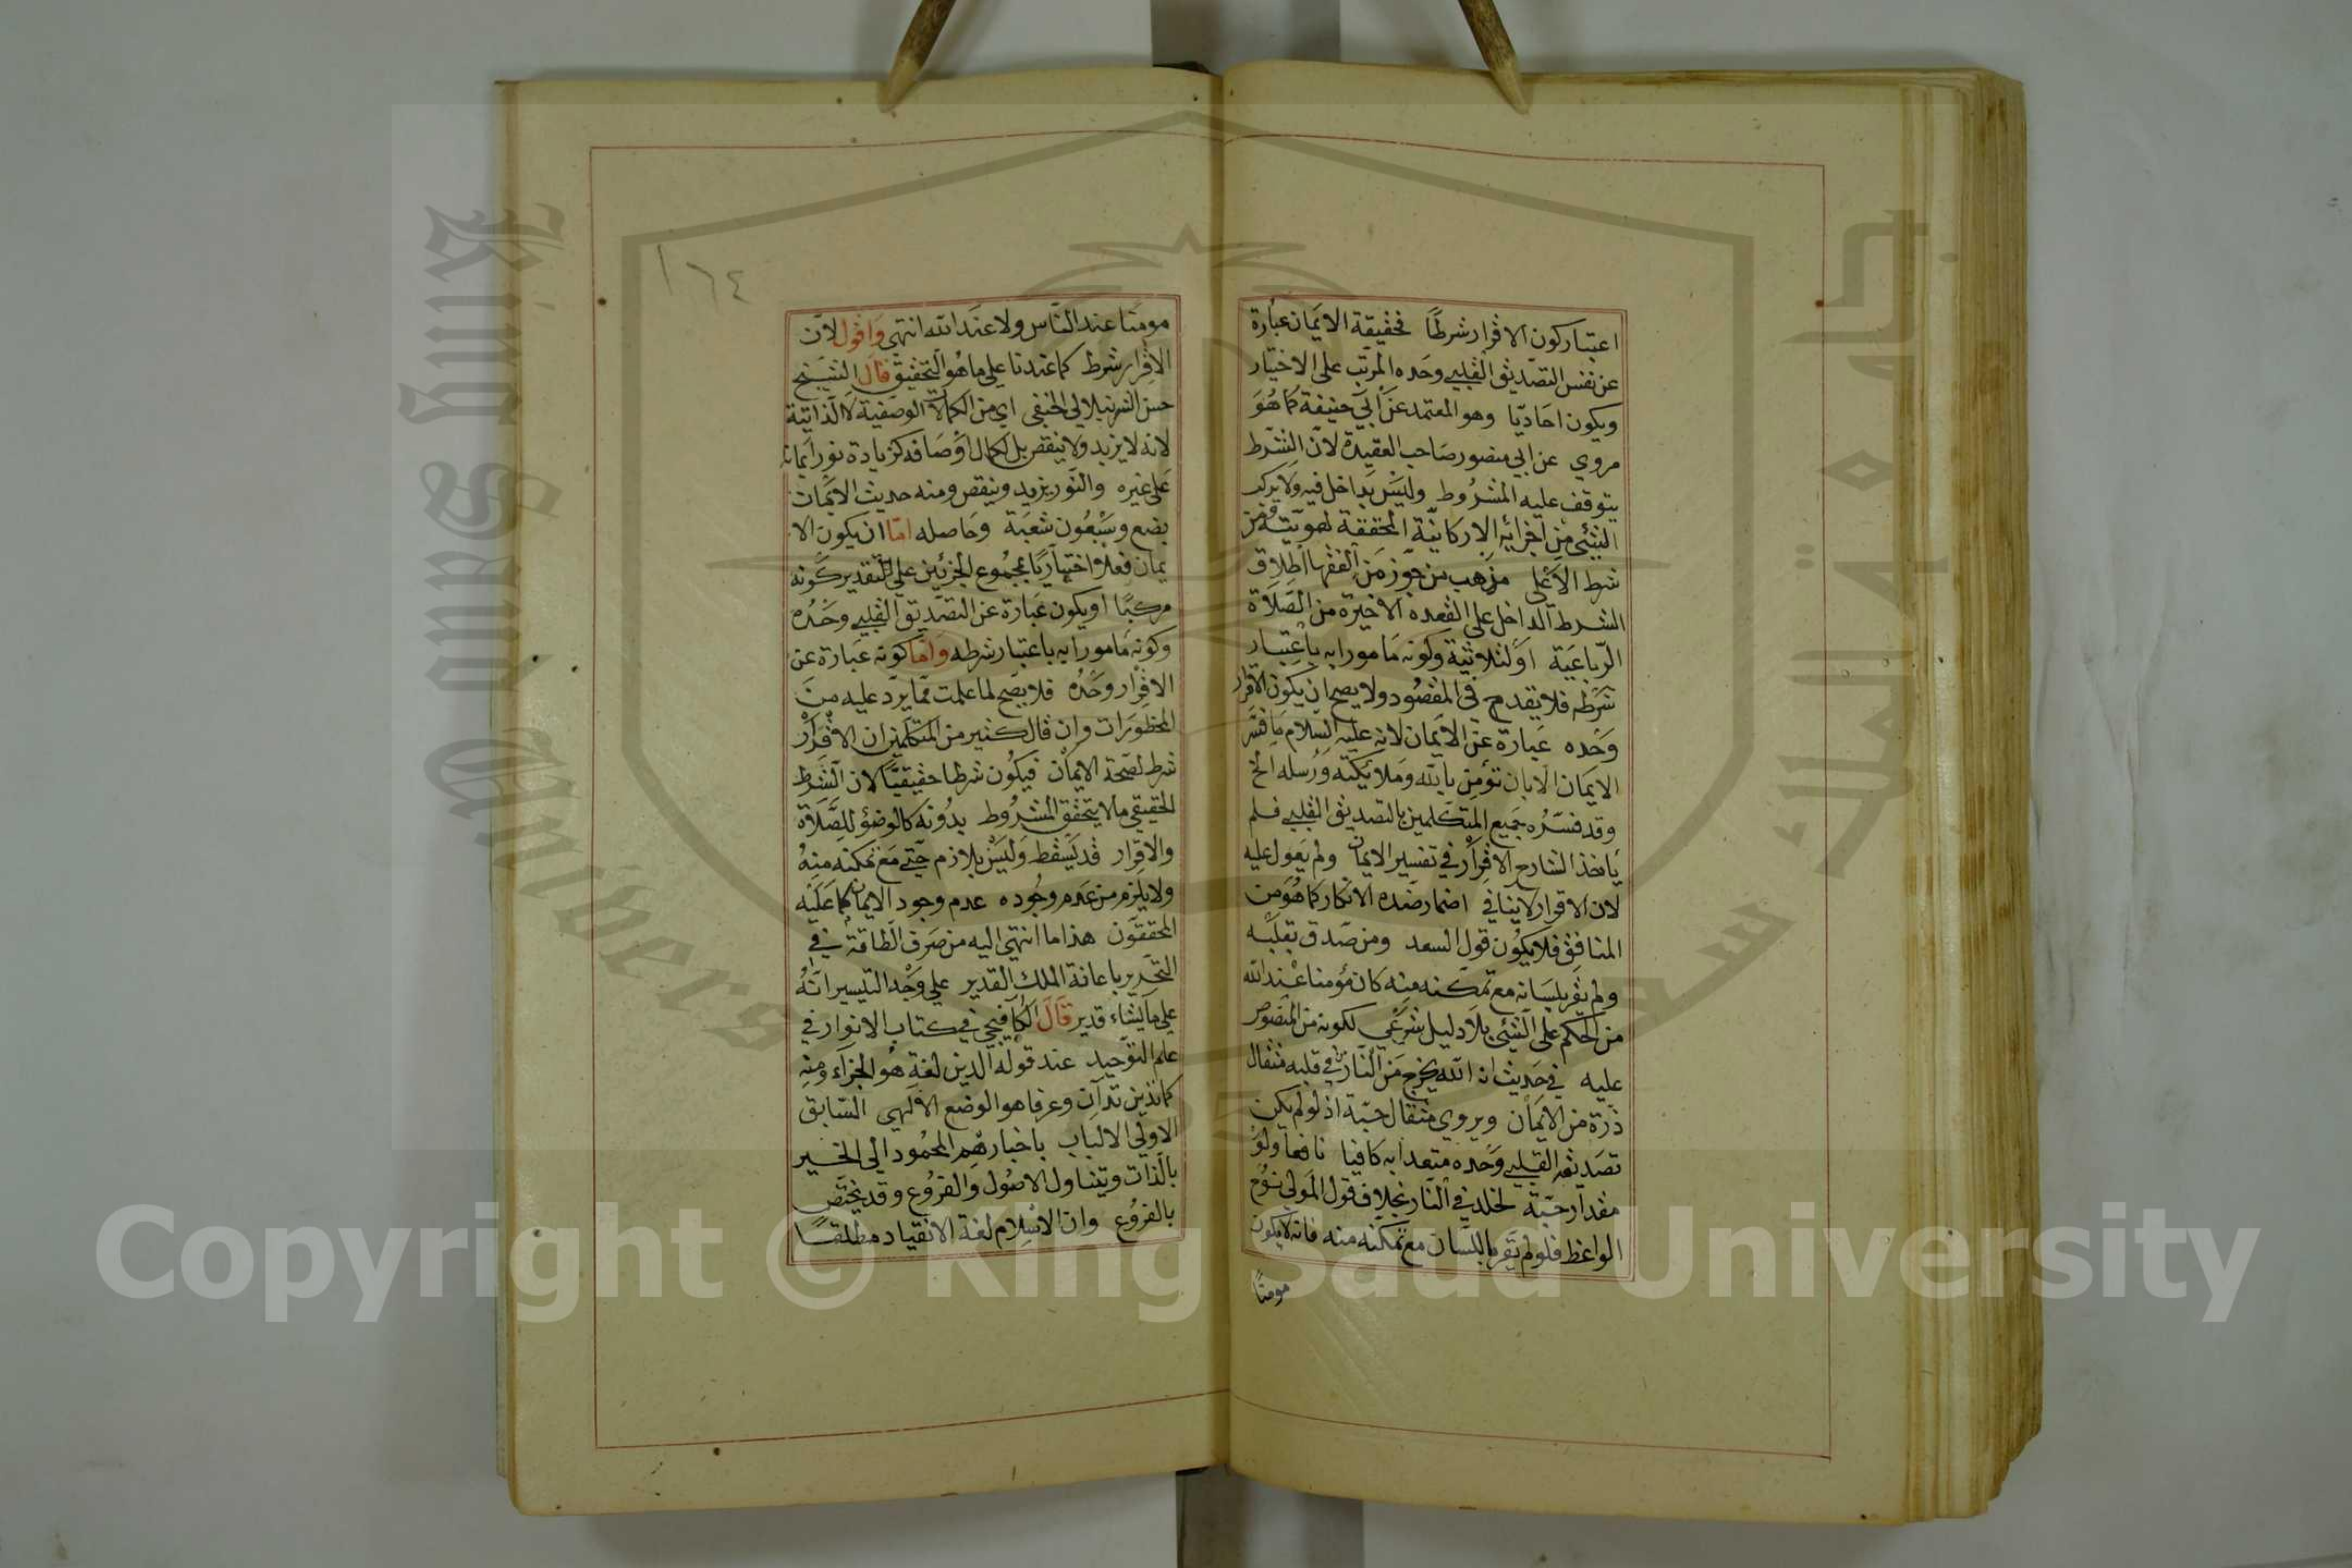 اعتبار كون الاقرار شرطًا فحقيقة الايمان عبارة
عن نفس التصديق القلبي وحده المرتب على الاختيار
ويكون احاديّا وهو المعتمد عن ابي حنيفة كما هو
مروي عن ابي منصور صاحب العقيدة لان الشرط
يتوقف عليه المشروط وليس بداخل فيه ولا يركب
الشيئ من اجزايه الاركانيّة المحققة لهويته فمن
شرط الاعلى مذهب من جوّز من الفقها اطلاق
الشرط الداخل على القعده الاخيرة من الصلاة
الرباعية او الثلاثية وكونه مامورا به باعتبار
شرطه فلا يقدح في المقصود ولا يصح ان يكون الاقرار
وحده عبارة عن الايمان لانه عليه السلام ما فسر
الايمان الا بان تؤمن بالله وملائكته ورسله الخ
وقد فسره جميع المتكلمين بالتصديق القلبي فلم
ياخذ الشارح الاقرار في تفسير الايمان ولم يعول عليه
لان الاقرار لا ينافي اضمار ضده الانكار كما هو من
المنافق فلا يكون قول السعد ومن صدق بقلبه
ولم يقر بلسانه مع تمكنه منه كان مؤمنا عند الله
من الحكم على الشيئ بلا دليل شرعي لكونه من المنصوص
عليه في حديث ان الله يخرج من النار من في قلبه مثقال
ذرة من الايمان ويروي مثقال حبّة اذ لو لم يكن
تصديقه القلبي وحده متعدا به كافيا نافعا ولو
مقدار حبّة لخلد في النار بخلاف قول المولى نوح
الواعظ فلو لم يقر باللسان مع تمكنه منه فانه لا يكون
مومنًا
١٦٤
مومنًا عند الناس ولا عند الله انتهى واقول لان
الاقرار شرط كما عندنا على ما هو التحقيق قال الشيخ
حسن الشرنبلالي الحنفي اي من الكمالات الوصفية لا الذاتية
لانه لا يزيد ولا ينقص بل الكمال اوصافه كزيادة نور ايمانه
على غيره والنور يزيد وينقص ومنه حديث الايمان
بضع وسبعون شعبة وحاصله امّا ان يكون الا
يمان فعلا اختياريّا بمجموع الجزئين على التقدير كونه
مركبًا او يكون عبارة عن التصديق القلبي وحده
وكونه مامورا به باعتبار شرطه وامّا كونه عبارة عن
الاقرار وحده فلا يصح لما علمت ممّا يرد عليه من
المحظورات وان قال كثير من المتكلمين ان الاقرار
شرط لصحة الايمان فيكون شرطا حقيقيّا لان الشرط
الحقيقي ما لا يتحقق المشروط بدونه كالوضؤ للصلاة
والاقرار قد يسقط وليس بلازم حتى مع تمكنه منه
ولا يلزم من عدم وجوده عدم وجود الايمان كما عليه
المحققون هذا ما انتهى اليه من صرف الطاقة في
التحرير باعانة الملك القدير على وجه التيسير انّه
على ما يشاء قدير قال الكافيجي في كتاب الانوار في
علم التوحيد عند قوله الدين لغة هو الجزاء ومنه
كما تدين تدان وعرفا هو الوضع الالهي السّابق
لاولي الالباب باختيارهم المحمود الى الخير
بالذات ويتناول الاصول والفروع وقد يختص
بالفروع وان الاسلام لغة الانقياد مطلقًا
Copyright © King Saud University
King Saud University
جامعة الملك سعود